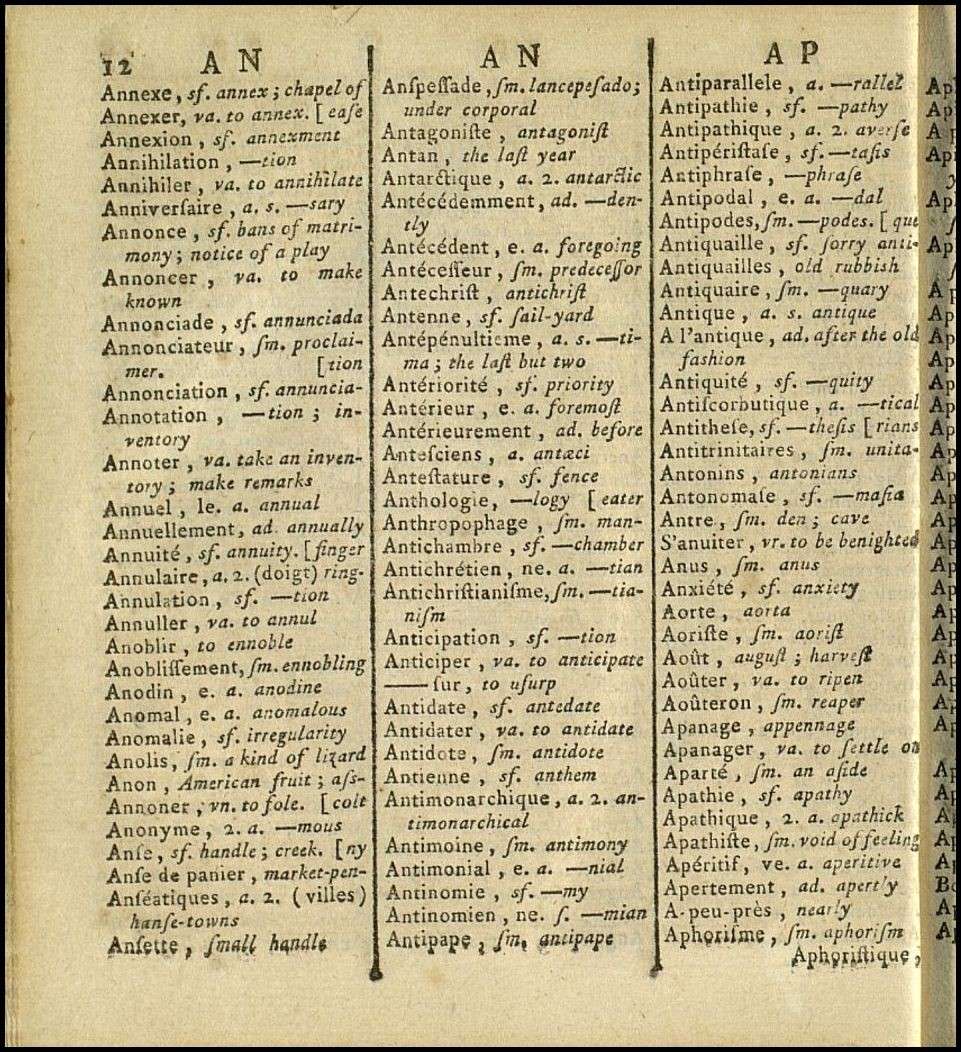 12 A N
Annexe, ſf. annex; chapel of
Annexer, va. to annex. [ eaſe
Annexion, ſf. annexment
Annihilation, —tion
Annihiler, va. to annihilate
Anniverſaire, a. s. —sary
Annonce, ſf. bans of matri-
mony; notice of a play
Annoncer, va. to make
known
Annonciade, ſf. annunciada
Annonciateur, ſm. proclai-
mer. [tion
Annonciation, ſf. annuncia-
Annotation, —tion; in-
ventory
Annoter, va. take an inven-
tory; make remarks
Annuel, le. a. annual
Annuellement, ad. annually
Annuité, ſf. annuity. [finger
Annulaire, a. 2. (doigt) ring-
Annulation, ſf. —tion
Annuller, va. to annul
Anoblir, to ennoble
Anobliſſement, ſm. ennobling
Anodin, e. a. anodine
Anomal, e. a. anomalous
Anomalie, ſf. irregularity
Anolis, ſm. a kind of lizard
Anon, American fruit; aſs-
Annoner, vn. to fole. [colt
Anonyme, 2. a. —mous
Anſe, ſf. handle; creek. [ny
Anſe de panier, market-pen-
Anſéatiques, a. 2. (villes)
hanſe-towns
Anſette, ſmall handle
A N
Anſpeſſade, ſm. lancepeſado;
under corporal
Antagoniſte, antagoniſt
Antan, the laſt year
Antarctique, a. 2. antarctic
Antécédemment, ad. —den-
tly
Antécédent, e. a. foregoing
Antéceſſeur, ſm. predeceſſor
Antechriſt, antichriſt
Antenne, ſf. ſail-yard
Antépénultieme, a. s. —ti-
ma; the laſt but two
Antériorité, ſf. priority
Antérieur, e. a. foremoſt
Antérieurement, ad. before
Anteſciens, a. antæci
Anteſtature, ſf. fence
Anthologie, —logy [ eater
Anthropophage, ſm. man-
Antichambre, ſf. —chamber
Antichrétien, ne. a. —tian
Antichriſtianiſme, ſm. —tia-
niſm
Anticipation, ſf. —tion
Anticiper, va. to anticipate
—— ſur, to uſurp
Antidate, ſf. antedate
Antidater, va. to antidate
Antidote, ſm. antidote
Antienne, ſf. anthem
Antimonarchique, a. 2. an-
timonarchical
Antimoine, ſm. antimony
Antimonial, e. a. —nial
Antinomie, ſf. —my
Antinomien, ne. ſ. —mian
Antipape, ſm. antipape
A P
Antiparallele, a. —rallel
Antipathie, ſf. —pathy
Antipathique, a. 2. averſe
Antipériſtaſe, ſf. —taſis
Antiphraſe, —phraſe
Antipodal, e. a. —dal
Antipodes, ſm. —podes. [ que
Antiquaille, ſf. ſorry anti-
Antiquailles, old rubbish
Antiquaire, ſm. —quary
Antique, a. s. antique
A l'antique, ad. after the old
faſhion
Antiquité, ſf. —quity
Antiſcorbutique, a. —tical
Antitheſe, ſf. —theſis [ rians
Antitrinitaires, ſm. unita-
Antonins, antonians
Antonomaſe, ſf. —maſia
Antre, ſm. den; cave
S'anuiter, vr. to be benighted
Anus, ſm. anus
Anxiété, ſf. anxiety
Aorte, aorta
Aoriſte, ſm. aoriſt
Août, auguſt; harveſt
Aoûter, va. to ripen
Aoûteron, ſm. reaper
Apanage, appennage
Apanager, va. to ſettle on
Aparté, ſm. an aſide
Apathie, ſf. apathy
Apathique, 2. a. apathick
Apathiſte, ſm. void of feeling
Apéritif, ve. a. aperitive
Apertement, ad. apertly
A-peu-près, nearly
Aphoriſme, ſm. aphoriſm
Aphoriſtique,